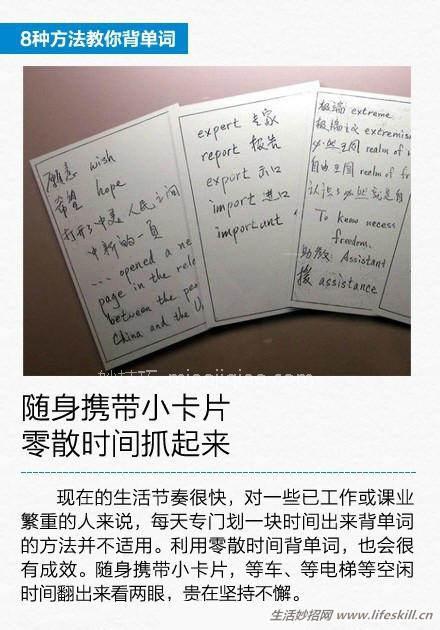 8种方法教你背单词
愿意 wish
希望 hope
打开了中美人民之间
中新的一頁
... opened a ne
page in the rele
between the peo
China and the U
expert 专家
report 报告
export 出口
import 进口
important
极端 extreme
极端主义 extremis
必然王国 realm of n
自由王国 realm of f
认识了必然就是自
To know necess
freedom.
助教 Assistant
援 assistance
随身携带小卡片
零散时间抓起来
现在的生活节奏很快，对一些已工作或课业
繁重的人来说，每天专门划一块时间出来背单词
的方法并不适用。利用零散时间背单词，也会很
有成效。随身携带小卡片，等车、等电梯等空闲
时间翻出来看两眼，贵在坚持不懈。
生活妙招网 www.lifeskill.cn